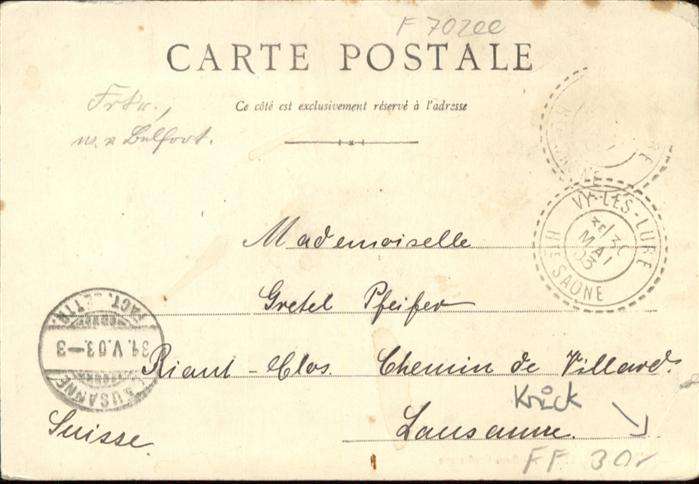 F 70200
CARTE POSTALE
Ce côté est exclusivement réservé à l'adresse
Frkr.,
w. v Belfort.
VY-LES-LURE
MAI
03
HTE SAONE
Mademoiselle
Gretel Pfeifer
Riant-Clos. Chemin de Villard.
Krick
Lausanne.
Suisse.
FACT. LETTR.
31.V.03.-3
LAUSANNE
FF 30,-